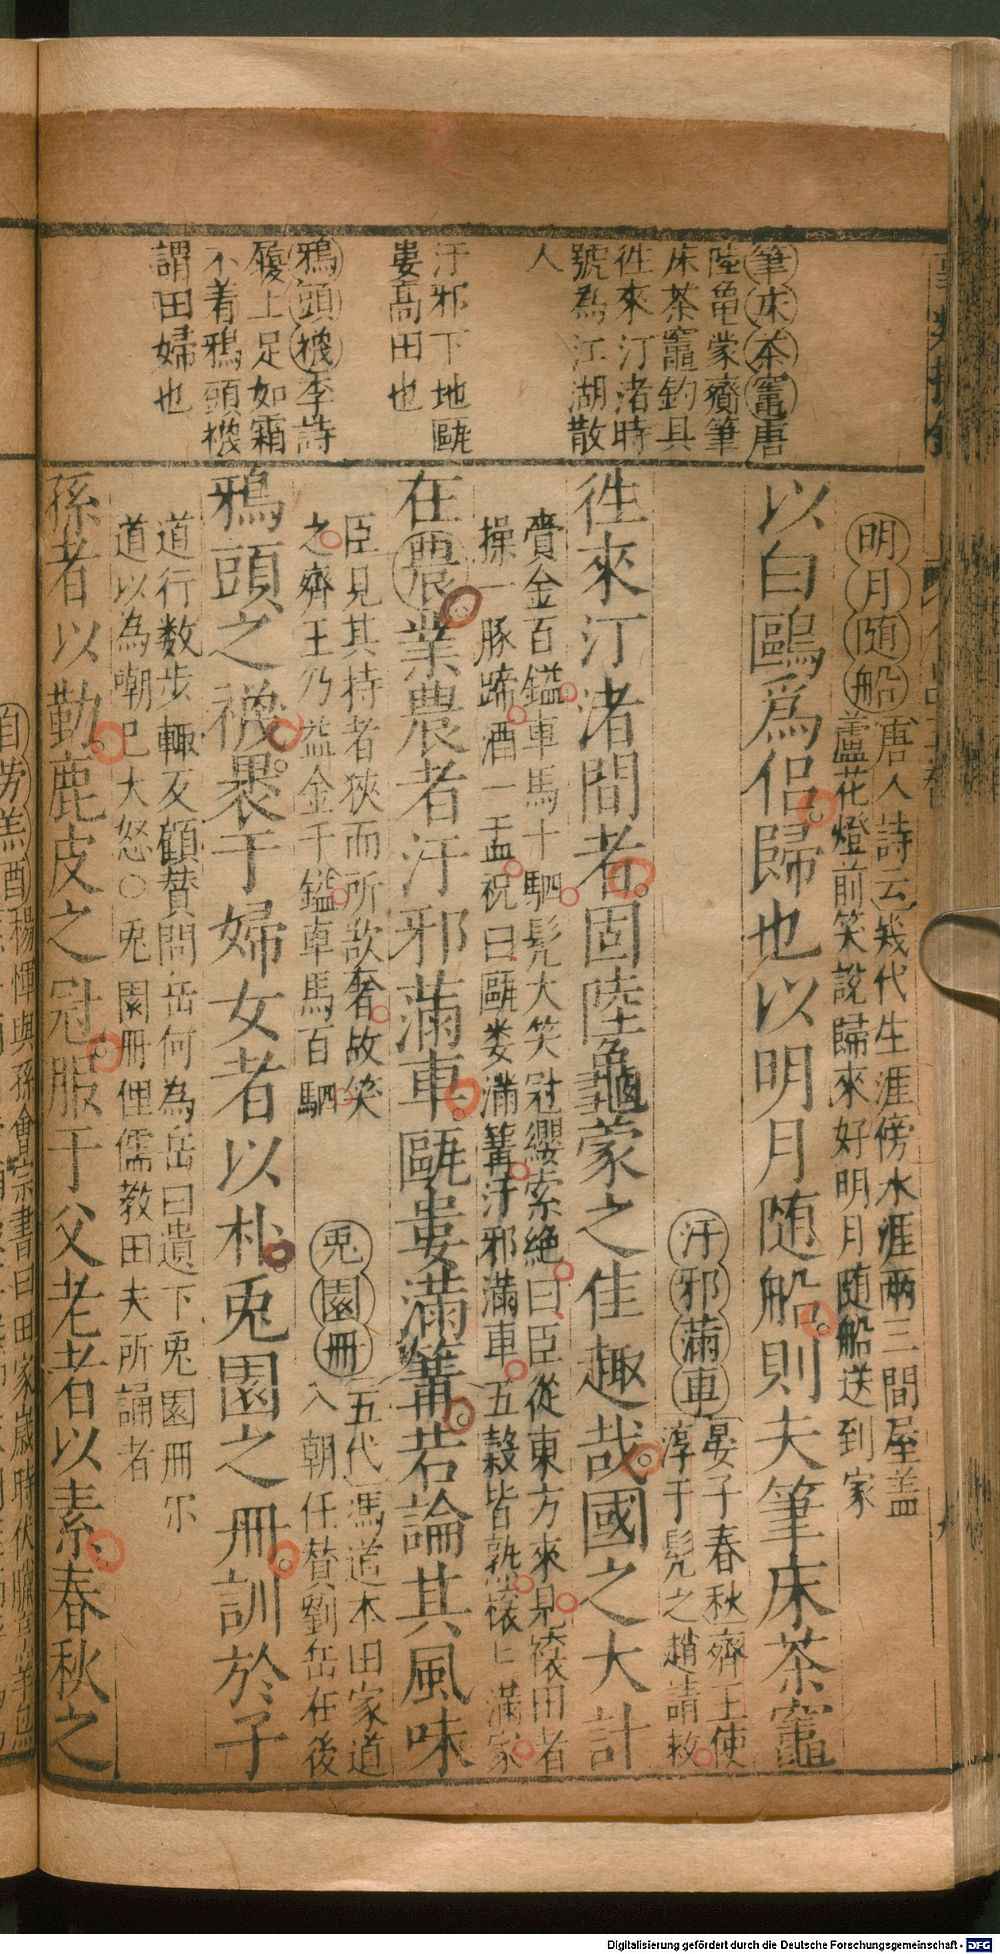 筆床茶竈唐
陸龜蒙齎筆
床茶竈釣具
徃來汀渚時
號為江湖散
人
汙邪下地甌
婁高田也
鴉頭襪李詩
履上足如霜
不着鴉頭襪
謂田婦也
明月随船唐人詩云幾代生涯傍水涯兩三間屋盖
蘆花燈前笑說歸來好明月随船送到家
以白鷗爲侣歸也以明月随船則夫筆床茶竈
汙邪滿車晏子春秋齊王使
淳于髠之趙請救
徃來汀渚間者固陸龜蒙之佳趣哉國之大計
賫金百鎰車馬十駟髠大笑冠纓索絶曰臣從東方來見禳田者
操一豚蹄酒一盂祝曰甌婁滿篝汙邪滿車五穀皆熟穰〻滿家
在農業農者汙邪滿車甌婁滿篝若論其風味
臣見其持者狹而所欲奢故笑
之齊王乃益金千鎰車馬百駟
兎園冊五代馮道本田家道
入朝任賛劉岳在後
鴉頭之襪褁于婦女者以朴兎園之冊訓於子
道行数步輙反顧賛問岳何為岳曰遺下兎園冊尓
道以為嘲巳大怒○兎園冊俚儒教田夫所誦者
孫者以勤鹿皮之冠服于父老者以素春秋之
自劳羔酉
楊惲與孫會宗書曰田家歲時伏臘
Digitalisierung gefördert durch die Deutsche Forschungsgemeinschaft - DFG